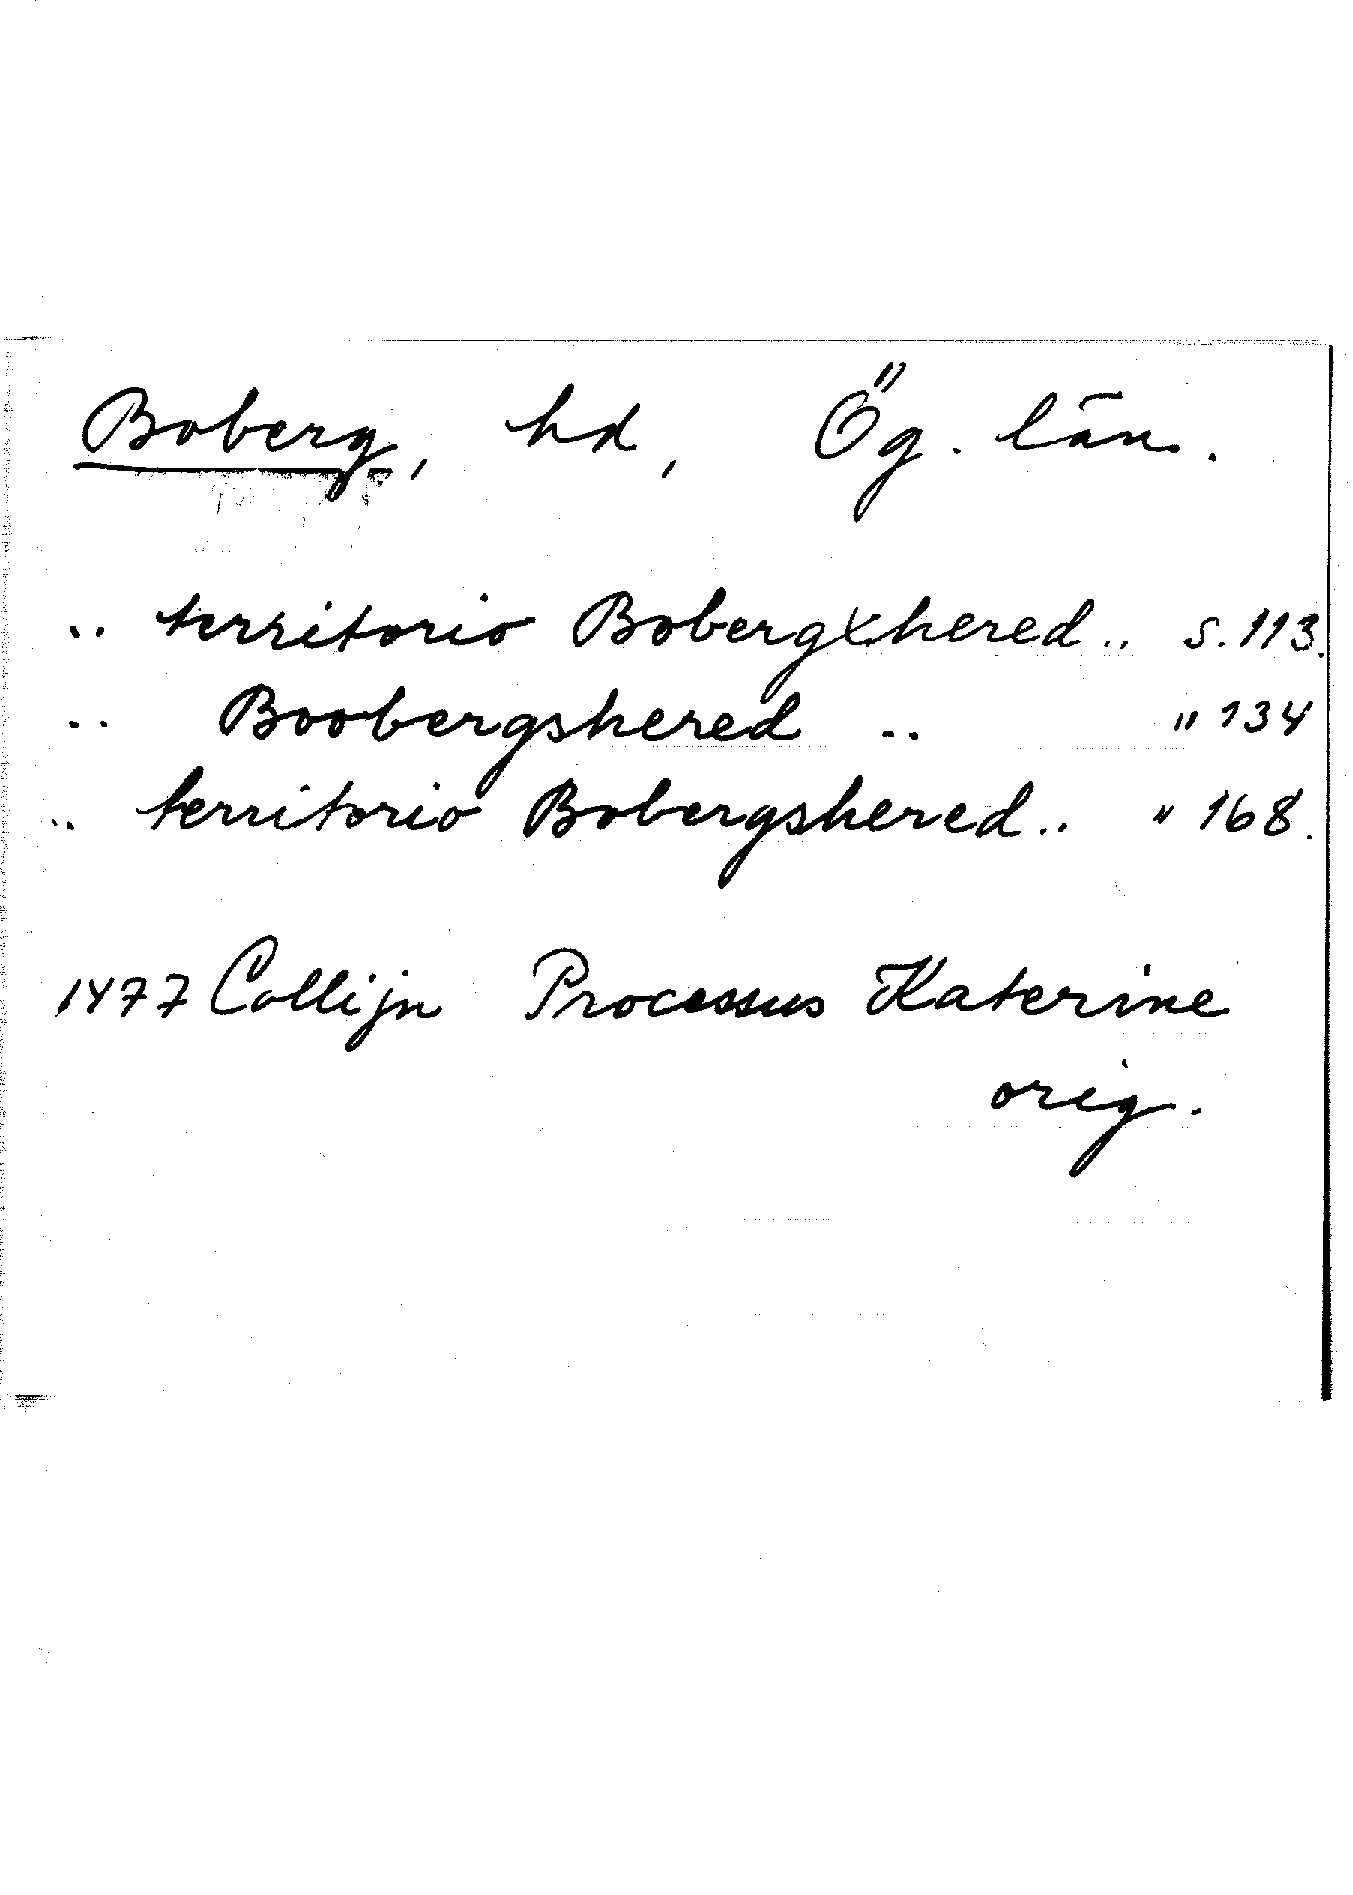 Boberg, hd, Ög. län.
.. territorio Bobergxhered.. s. 113.
.. Boobergshered .. " 134
.. territorio Bobergshered.. " 168.
1477 Collijn Processus Katerine
orig.